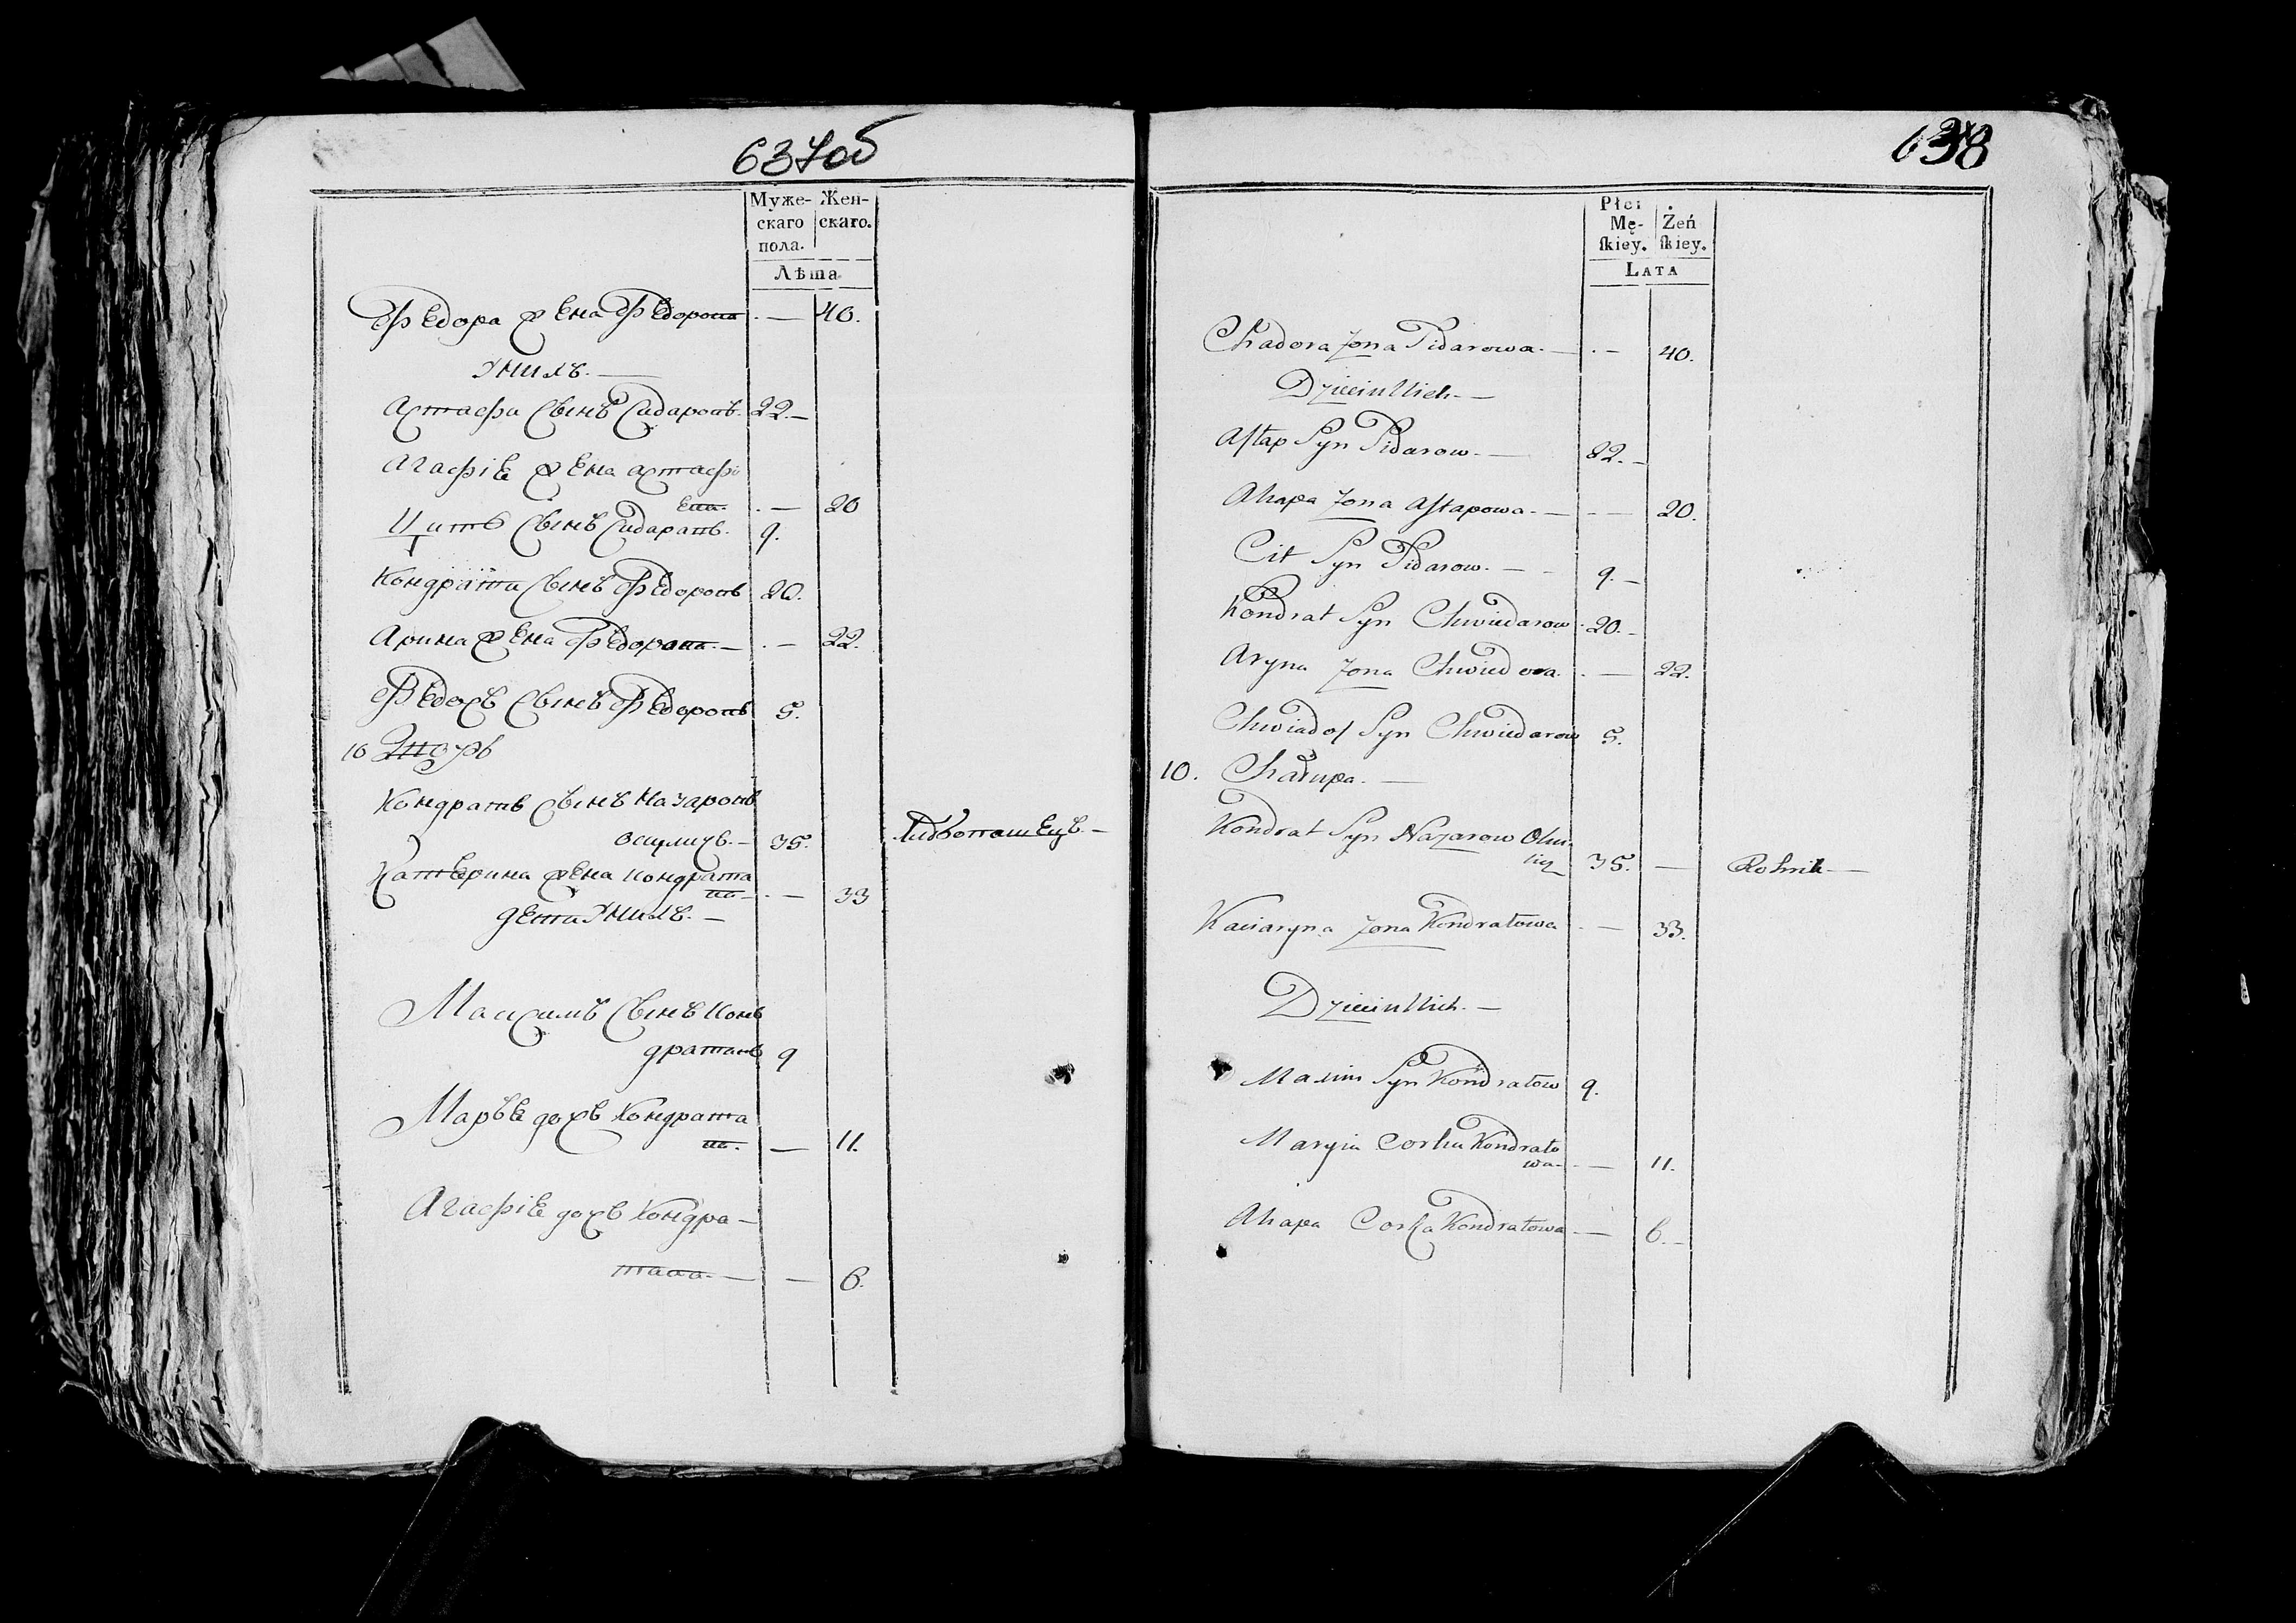 637об
Муже- Жен-
скаго скаго.
пола.
Лѣта
Федора жена Федорова . — 40.
У нихъ. —
Астафи сынъ Сидаровъ. 22. —
Агафiе жена Астафi
ева. . — 20
Цитъ сынъ Сидаравъ. 9.
Кондрати сынъ Федоровъ 20.
Арина жена Федорава. — . — 22.
Федосъ сынъ Федоровъ 5.
10 Двоуръ
Кондратъ сынъ Назаровъ
35. —
Катерина жена Кондрата
ва — . — 33
Дети У нихъ. —
Максимъ сынъ Конъ
дратавъ 9
Маръе дочъ Кондрата
ва. — 11.
Агафiе дочъ Кондра —
тава. — — 6.
638
Płci
Mę- Żeń
ſkiey. ſkiey.
LATA
Chadora Zona Sidarowa. — . — 40.
Dzieci u Nich. —
Aſtap Syn Sidarow. — 22. —
Ahapa Zona Aſtapowa. — . — 20.
Cit Syn Sidarow. — 9. —
Kondrat Syn Chwiedarow 20. —
Aryna Zona Chwiedora. . — 22.
Chwiadoſ Syn Chwiedarow 5.
10. Chałupa. —
Kondrat Syn Nazarow
35. — Rolnik —
Kaciaryna Zona Kondratowa . — 33.
Dzieci u Nich. —
Maxim Syn Kondratow 9.
Maryia Corka Kondrato
wa — . — 11.
Ahapa Corka Kondratowa — 6. —